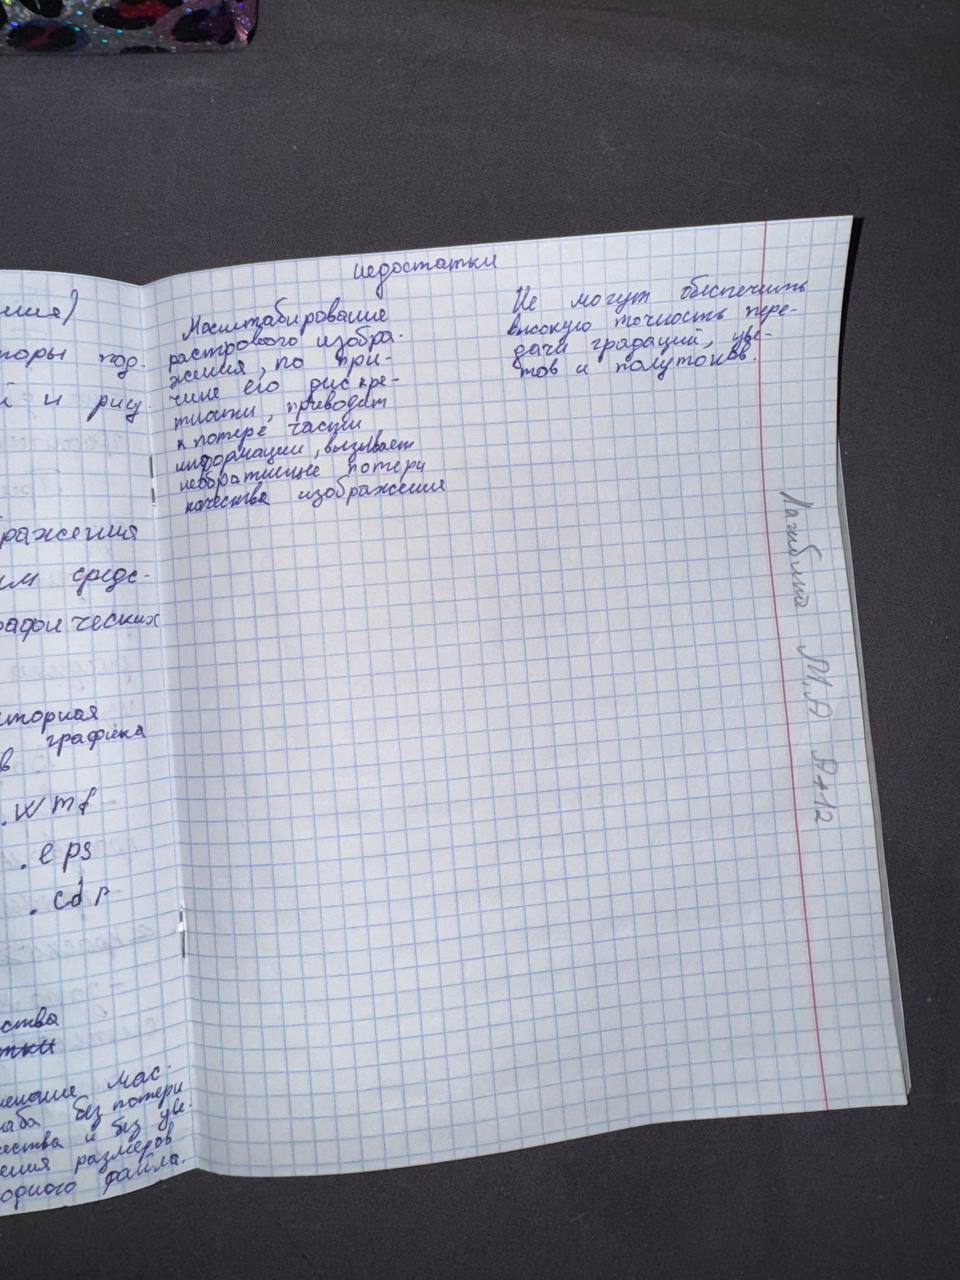 ния)
торы под-
й и рису-
ражения
им средс-
рафических
кторная
в графика
.wmf
.eps
.cdr
ства
тки
менение мас-
таба без потери
чества и без уве-
чения размеров
одного файла.
недостатки
Масштабирование
растрового изобра-
жения, по при-
чине его дискре-
тности, приводит
к потере части
информации, вызывает
необратимые потери
качества изображения
Не могут обеспечить
высокую точность пере-
дачи градаций, цве-
тов и полутонов.
М.А